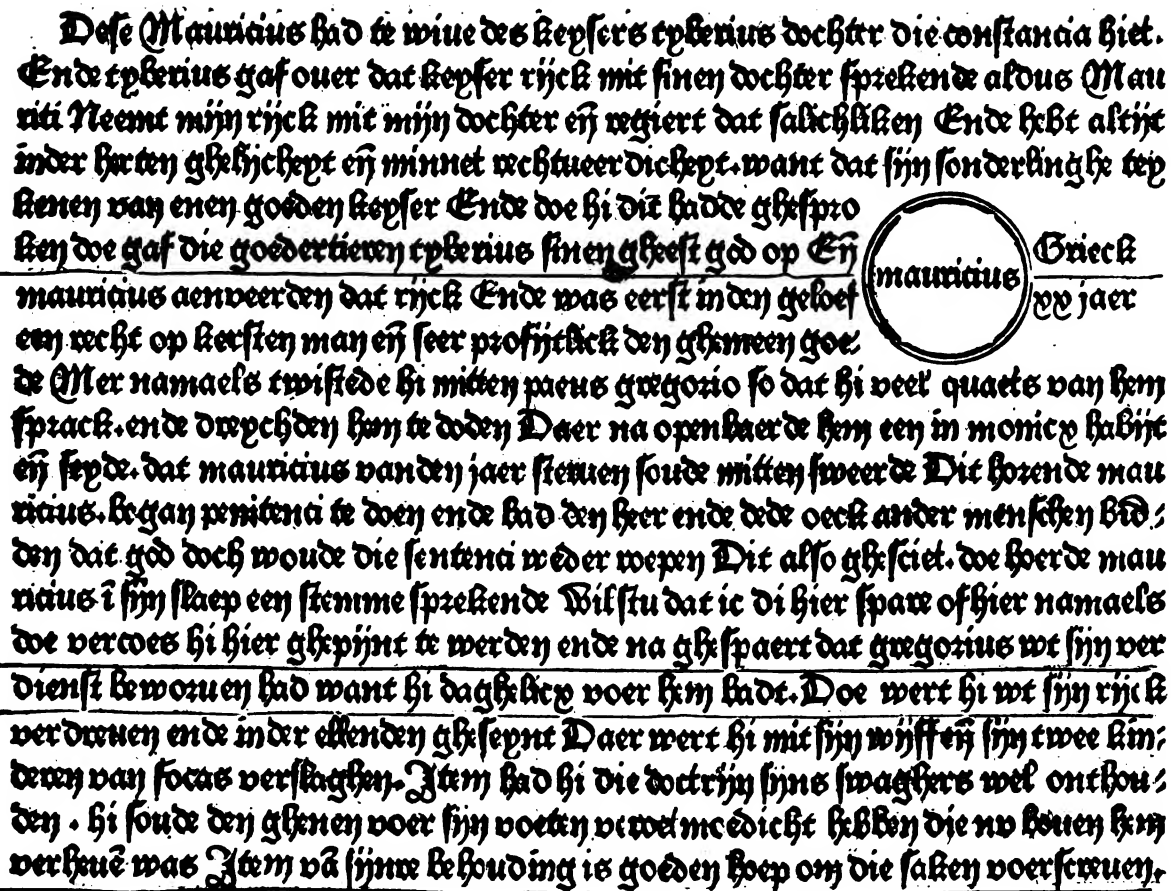 Dese Mauricius had te wiue des keysers tyberius dochter die constancia hiet.
Ende tyberius gaf ouer dat keyser rijck mit sinen dochter sprekende aldus Mau
riti Neemt mijn rijck mit mijn dochter eñ regiert dat salichliken Ende hebt altijt
inder herten ghelijcheyt eñ minnet rechtueerdicheyt. want dat sijn sonderlinghe tey
kenen van enen goeden keyser Ende doe hi dit hadde ghespro
ken doe gaf die goedertieren tyberius sinen gheest god op Eñ
mauricius aenveerden dat rijck Ende was eerst in den geloef
een recht op kersten man eñ seer profijtlick den ghemeen goe:
mauricius
Grieck
xx jaer
de Mer namaels twistede hi mitten paeus gregorio so dat hi veel quaets van hem
sprack. ende dreychden hem te doden Daer na openbaerde hem een in monicx habijt
eñ seyde. dat mauricius vanden jaer steruen soude mitten sweerde Dit horende mau
ricius. began penitenci te doen ende bad den heer ende dede oeck ander menschen bid-
den dat god doch woude die sentenci weder roepen Dit also ghesciet. doe hoerde mau
ricius ī sijn slaep een stemme sprekende Wilstu dat ic di hier spare of hier namaels
doe vercoes hi hier ghepijnt te werden ende na ghespaert dat gregorius wt sijn ver
dienst beworuen had want hi daghelicx voer hem badt. Doe wert hi wt sijn rijck
verdreuen ende inder ellenden gheseynt Daer wert hi mit sijn wijff eñ sijn twee kin-
deren van focas verslaghen. Item had hi die doctrijn sijns swaghers wel onthou-
den. hi soude den ghenen voer sijn voeten hebben die nv bouen hem
verheuē was Item vā sijnre behouding is goeden hoep om die saken voerscreuen.